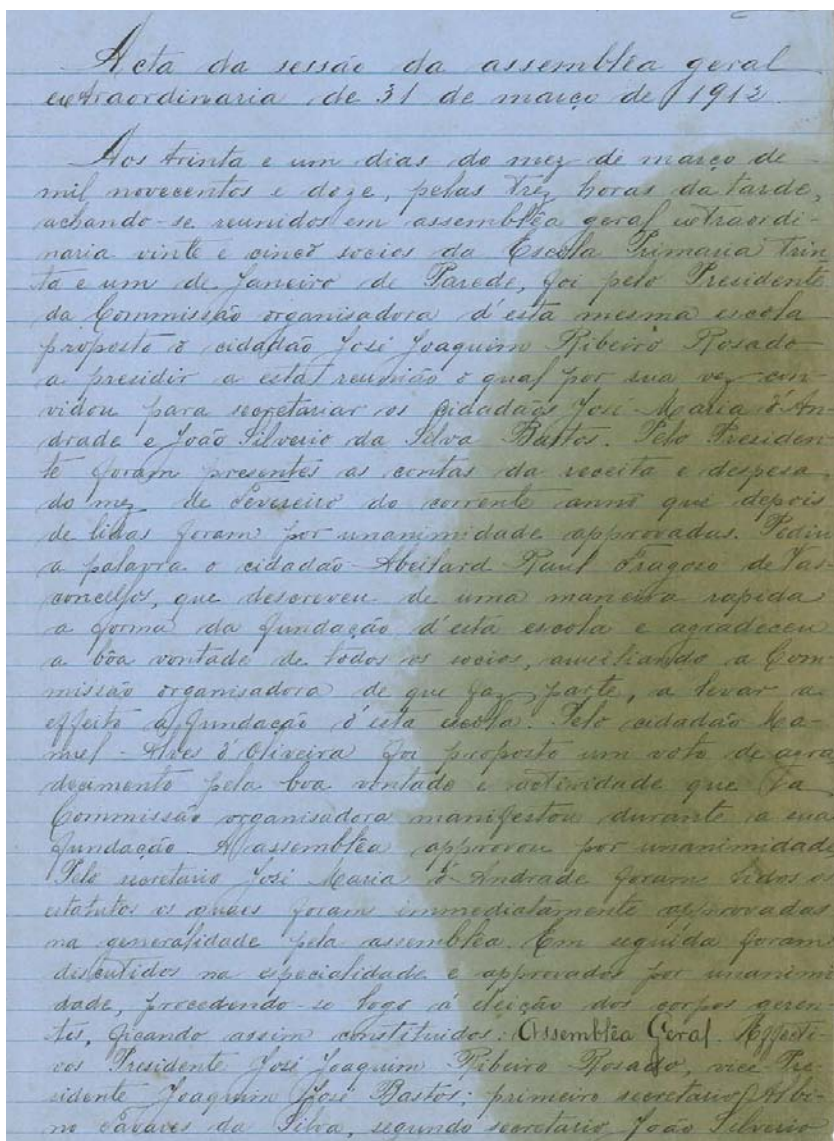 Acta da sessão da assemblêa geral
extraordinaria de 31 de março de 1912.
Aos trinta e um dias do mez de março de
mil novecentos e doze, pelas trez horas da tarde,
achando-se reunidos em assemblêa geral extraordi-
naria vinte e cinco socios da Escola Primaria Trin-
ta e um de Janeiro de Parede, foi pelo Presidente
da Commissão organisadora d'esta mesma escola
proposto o cidadão José Joaquim Ribeiro Rosado
a presidir a esta reunião o qual por sua vez con-
vidou para secretariar os cidadãos José Maria d'An-
drade e João Silverio da Silva Bastos. Pelo Presiden-
te foram presentes as contas da receita e despesa
do mez de Fevereiro do corrente anno que depois
de lidas foram por unanimidade approvadas. Pediu
a palavra o cidadão Abeilard Raul Fragoso de Vas-
concellos, que descreveu de uma maneira rapida
a forma da fundação d'esta escola e agradeceu
a bôa vontade de todos os socios, auxiliando a Com-
missão organisadora de que faz parte, a levar a
effeito a fundação d'esta escola. Pelo cidadão Ma-
nuel Alves d'Oliveira foi proposto um voto de agra
decimento pela boa vontade e actividade que a
Commissão organisadora manifestou durante a sua
fundação. A assemblêa approvou por unanimidade
Pelo secretario José Maria d'Andrade foram lidos os
estatutos os quaes foram immediatamente approvados
na generalidade pela assemblêa. Em seguida foram
discutidos na especialidade e approvados por unanimi
dade, procedendo-se logo á eleição dos corpos geren-
tes, ficando assim constituidos: Assemblêa Geral. Effecti-
vos Presidente José Joaquim Ribeiro Rosado, vice Pre-
sidente Joaquim José Bastos; primeiro secretario, Albi-
no Cavares da Silva, segundo secretario João Silverio